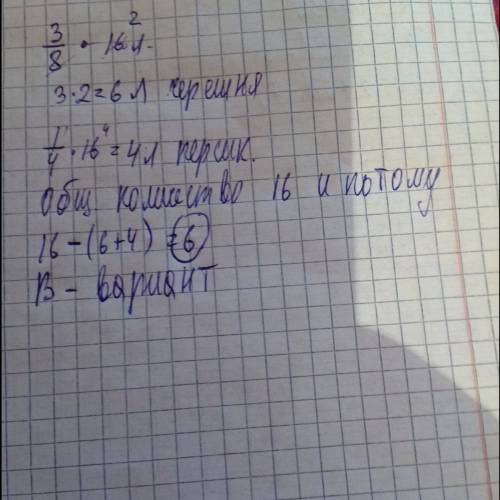 3/8 · 16 л. 2
3·2=6 л черешня
1/4 · 16 4 = 4 л персик.
Общ количество 16 и потому
16-(6+4) = 6
В - вариант